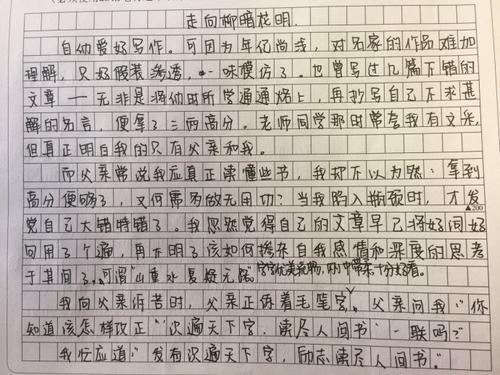 走向柳暗花明.
自幼爱好写作。可因为年纪尚浅，对名家的作品难加
理解，只好假装参透，一味模仿了。也曾写过几篇不错的
文章——无非是将幼时所学通通烙上，再抄写自己不求甚
解的名言，便拿了三两高分。老师同学那时常夸我有文采，
但真正明白我的只有父亲和我。
而父亲常说我应真正读懂些书，我却不以为然：拿到
高分便够了，又何需多做无用功？当我陷入瓶颈时，才发
▲200
觉自己大错特错了。我忽然觉得自己的文章早已将好词好
句用了个遍，再不明了该如何掺杂自我感情和深度的思考
于其间了。可谓“山重水复疑无路。字字优美流畅，十分好看。
我向父亲诉苦时，父亲正练着毛笔字，父亲问我“你
知道该怎样改正“识遍天下字，读尽人间书”一联吗？”
我忙应道“发奋识遍天下字，励志读尽人间书。”